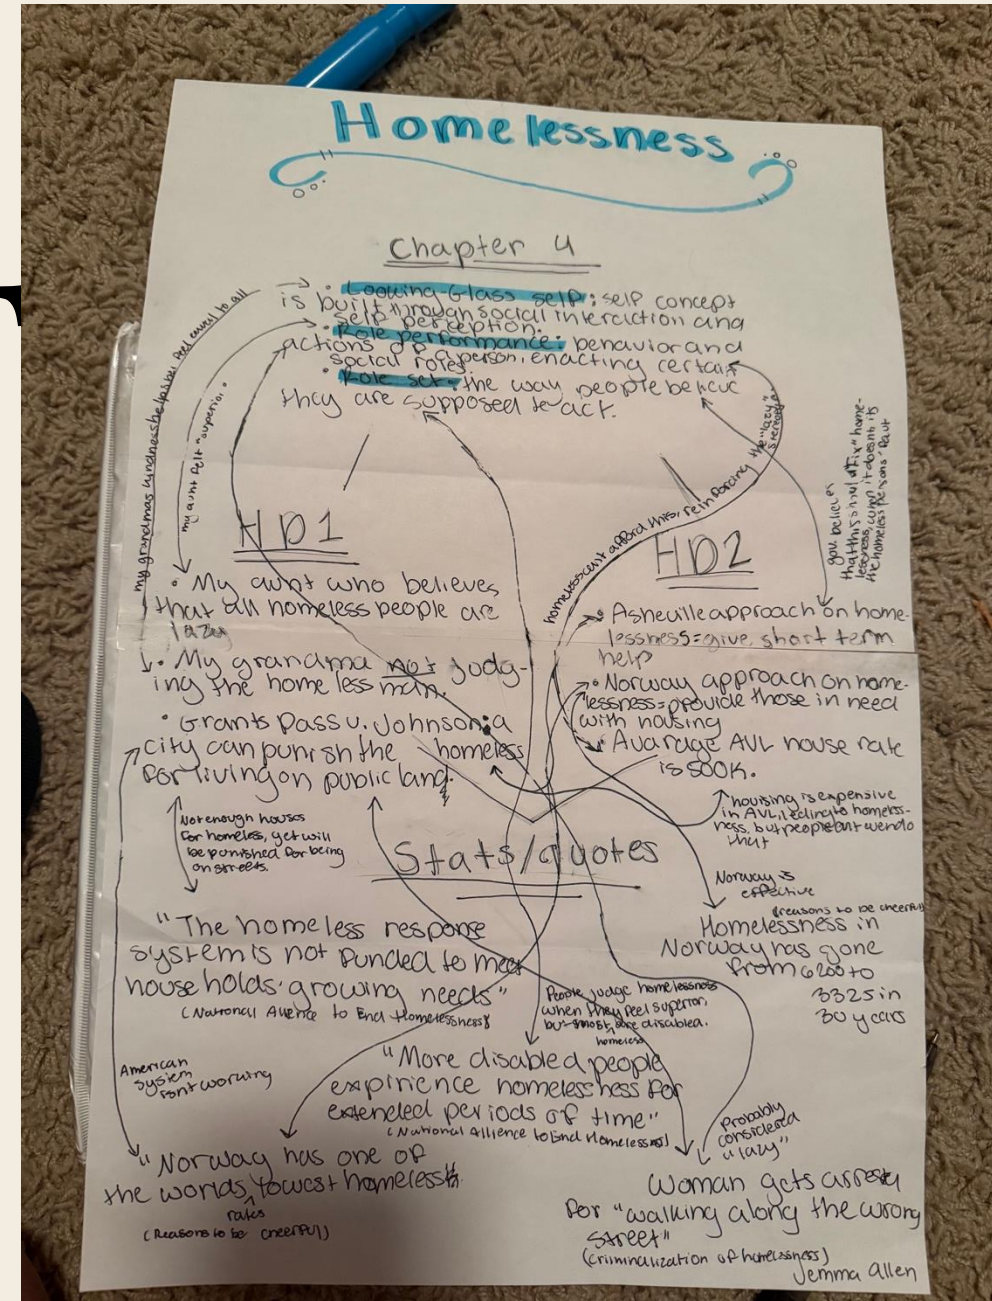 Homelessness
Chapter 4
• Looking-Glass self: self concept
is built through social interaction and
self perception.
• Role performance: behavior and
actions of a person, enacting certain
social roles
• Role set: the way people believe
they are supposed to act.
my grandmas kindness helps by feel equal to all
my aunt felt "superior"
homeless cant afford this, reinforcing the "lazy"
stereotype
you believe
that this will "fix" home-
lessness, when it doesnt its
the homeless persons' fault
HD1
• My aunt who believes
that all homeless people are
lazy
• My grandma not judg-
ing the homeless man.
• Grants Pass v. Johnson: a
city can punish the homeless
for living on public land.
HD2
• Asheville approach on home-
lessness = give short term
help
• Norway approach on home-
lessness = provide those in need
with housing
• Avarage AVL house rate
is 500K.
Not enough houses
for homeless, yet will
be punished for being
on streets.
housing is expensive
in AVL, leding to homeless-
ness, but people
that
Stats/quotes
Norway is
effective
"The homeless response
system is not funded to meet
households growing needs"
(National Allience to End Homelessness)
(reasons to be cheerful)
Homelessness in
Norway has gone
from 6200 to
3325 in
30 years
People judge homelessness
when they feel superior,
but most homeless are disabled.
American
system
isnt working
"More disabled people
expirience homelessness for
extended periods of time"
(National Allience to End Homelessness)
Probably
considered
"lazy"
"Norway has one of
the worlds lowest homeless
rates
(Reasons to be cheerful)
Woman gets arrested
for "walking along the wrong
street"
(criminalization of homelessness)
Jemma Allen